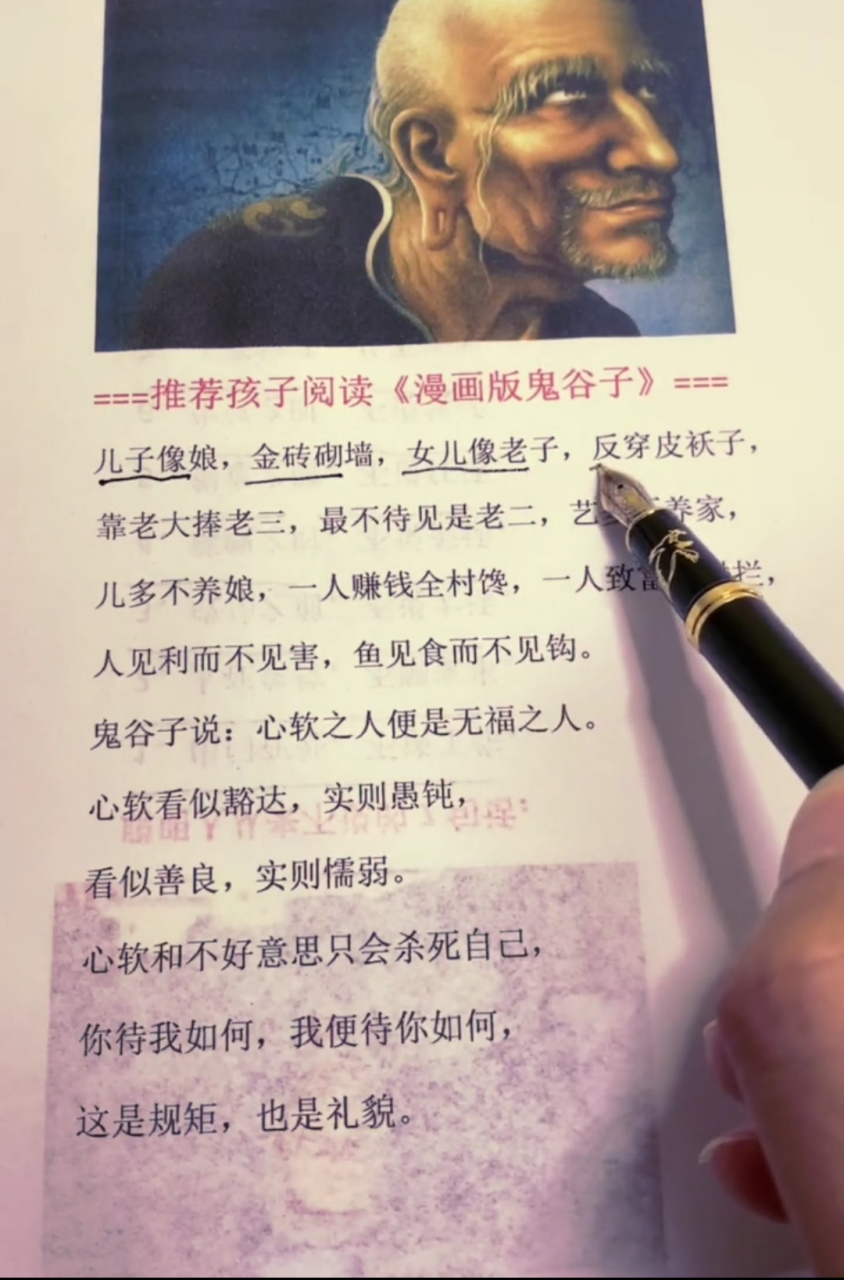 ===推荐孩子阅读《漫画版鬼谷子》===
儿子像娘，金砖砌墙，女儿像老子，反穿皮袄子，
靠老大捧老三，最不待见是老二，艺多养家，
儿多不养娘，一人赚钱全村馋，一人致富拦，
人见利而不见害，鱼见食而不见钩。
鬼谷子说：心软之人便是无福之人。
心软看似豁达，实则愚钝，
看似善良，实则懦弱。
心软和不好意思只会杀死自己，
你待我如何，我便待你如何，
这是规矩，也是礼貌。